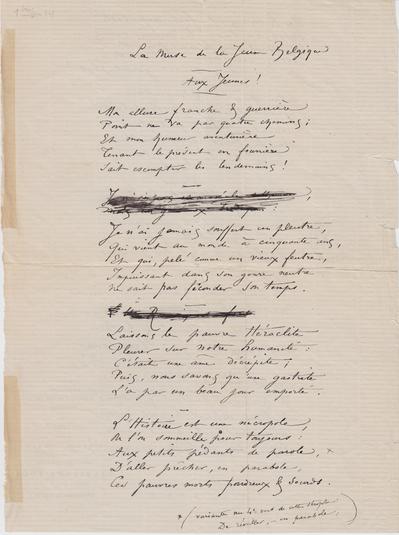 La Muse de la Jeune Belgique
Aux Jeunes!
Ma allure franche & guerrière
Point ne va par quatre chemins;
Et mon humeur aventurière
Tenant le présent en fourrière
Sait escompter les lendemains!
Je n'ai jamais souffert un pleutre,
Qui vient au monde à cinquante ans,
Et qui, pelé comme un vieux feutre,
Impuissant dans son genre neutre
Ne sait pas féconder son temps.
Laissons le pauvre Héraclite
Pleurer sur notre humanité:
C'était une âme décrépite;
Puis, nous savons qu'une gastrite
L'a par un beau jour emporté.
L'Histoire est une nécropole,
Où l'on sommeille pour toujours:
Aux petits pédants de parole, *
D'aller prêcher, en parabole,
Ces pauvres morts poudreux & sourds.
* (variante au 4e vers de cette strophe
De réveiller, – en parabole,)